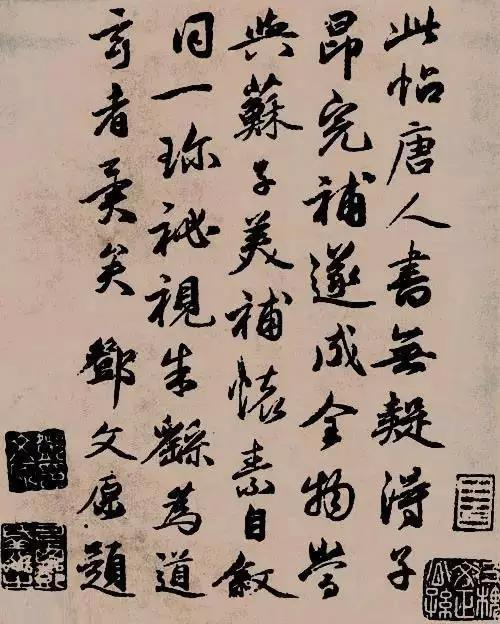 此帖唐人書無疑得子
昂完補遂成全物當
與蘇子美補懷素自敘
同一珍祕視朱繇為道
玄者異矣 鄧文原題